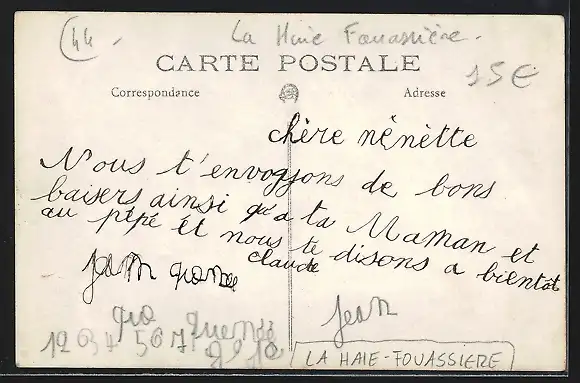 44
La Haie Fouassière.
15€
CARTE POSTALE
Correspondance
Adresse
chère nénètte
Nous t'envoyons de bons
baisers ainsi qu'a ta Maman et
au pépé et nous te disons a bientot
claude
Jean
1 2 3 4 5 6 7
LA HAIE-FOUASSIERE